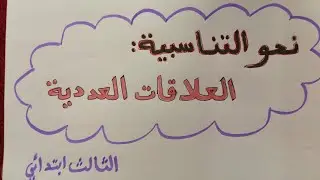 نحو التناسبية:
العلاقات العددية
الثالث ابتدائي